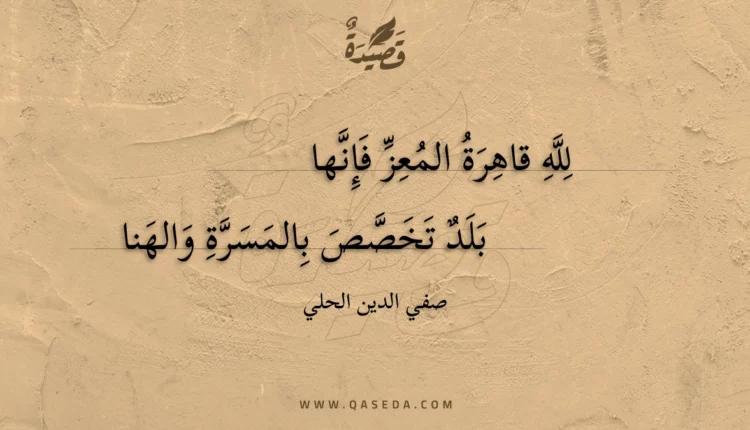 قَصِيدَةٌ
لِلَّهِ قاهِرَةُ المُعِزِّ فَإِنَّها
بَلَدٌ تَخَصَّصَ بِالمَسَرَّةِ وَالهَنا
صفي الدين الحلي
WWW.QASEDA.COM